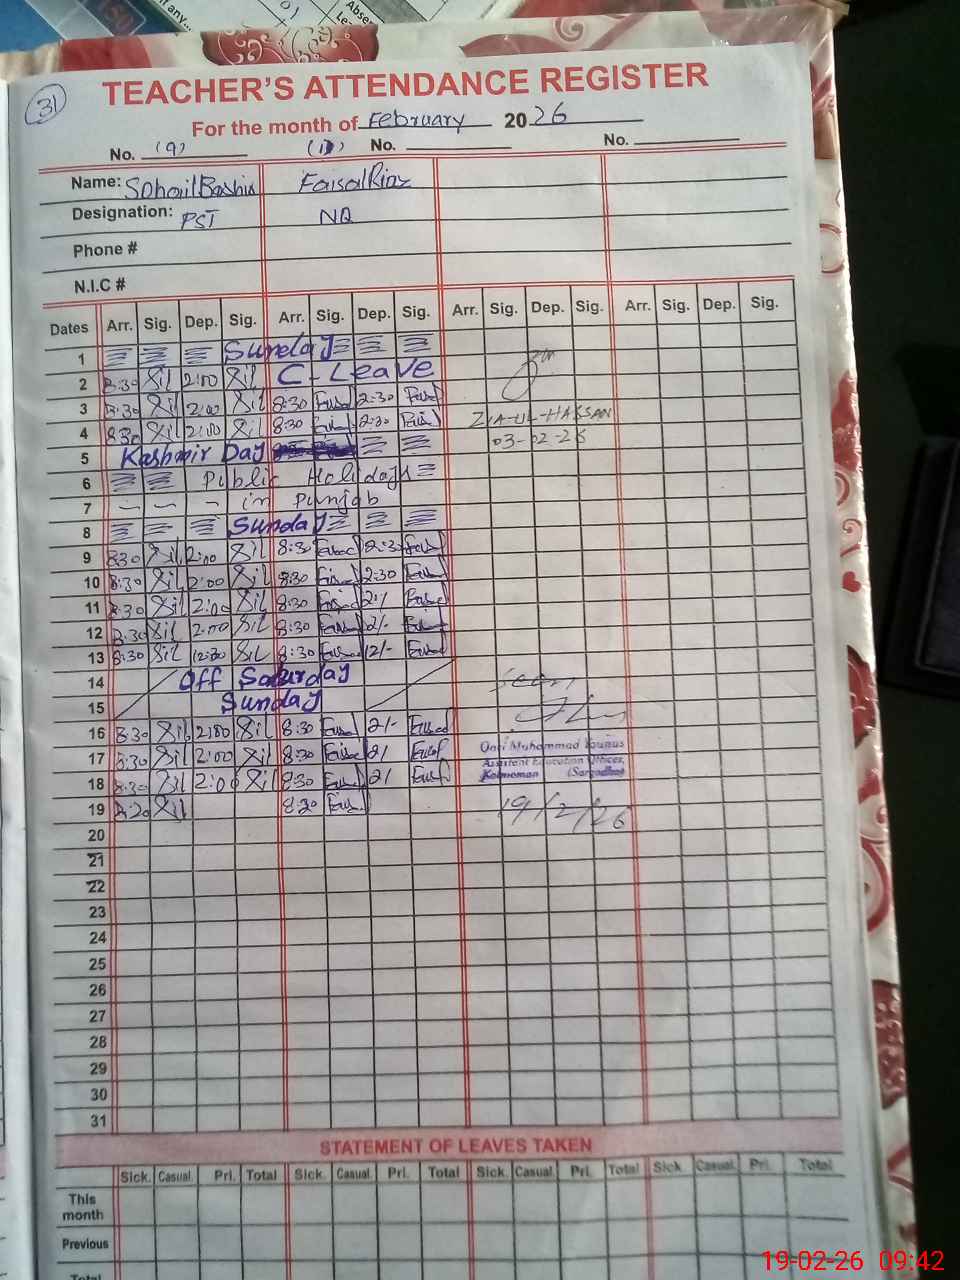 any...
Abse
Le
31
TEACHER'S ATTENDANCE REGISTER
For the month of February 2026
No. (9) (10) No. No.
Name: Sohail Bashir Faisal Riaz
Designation: PST NQ
Phone #
N.I.C #
Dates Arr. Sig. Dep. Sig. Arr. Sig. Dep. Sig. Arr. Sig. Dep. Sig. Arr. Sig. Dep. Sig.
1 Sunday
2 8:30 2:00 C-Leave
3 8:30 2:00 8:30 2:30
4 8:30 2:00 8:30 2:30 ZIA-UL-HASSAN
5 Kashmir Day 03-02-26
6 Public Holidays
7 in Punjab
8 Sunday
9 8:30 2:00 8:30 2:30
10 8:30 2:00 8:30 2:30
11 8:30 2:00 8:30 2/-
12 8:30 2:00 8:30 2/-
13 8:30 12:30 8:30 12/-
14 Off Saturday Seen
15 Sunday
16 8:30 2:00 8:30 2/-
17 8:30 2:00 8:30 2/ Qari Muhammad Younus
Assistant Education Officer,
18 8:30 2:00 8:30 2/ Kotmoman (Sargodha)
19 8:30 8:30 19/2/26
20
21
22
23
24
25
26
27
28
29
30
31
STATEMENT OF LEAVES TAKEN
Sick. Casual. Pri. Total Sick. Casual. Pri. Total Sick. Casual. Pri. Total Sick. Casual. Pri. Total
This month
Previous
Total
19-02-26 09:42